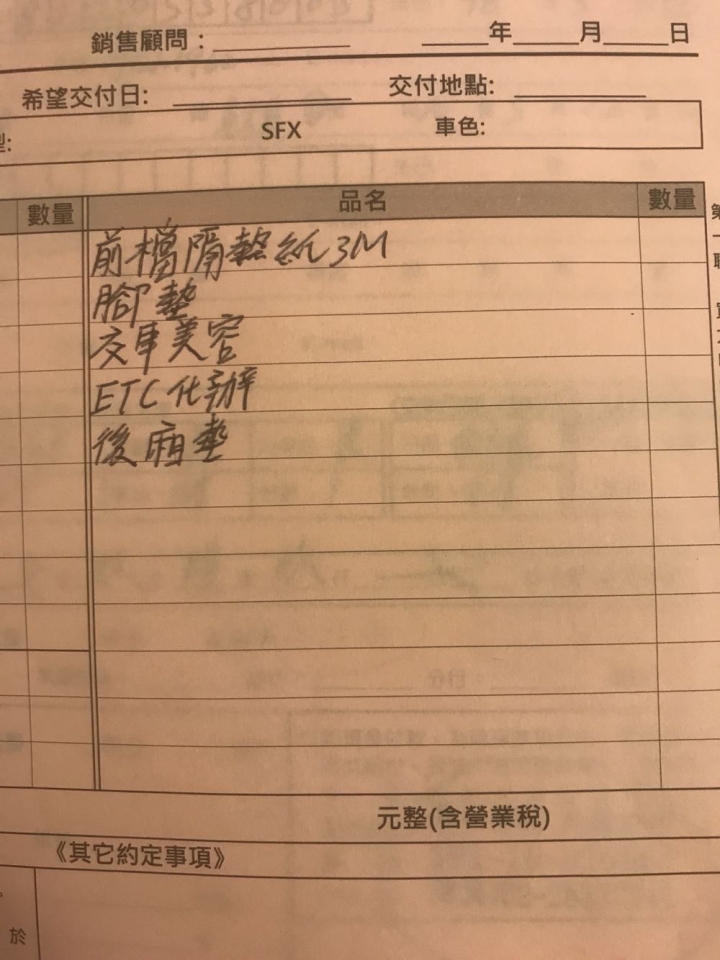 銷售顧問：________ ____年____月____日
希望交付日: ________ 交付地點: ________
型: SFX 車色:
數量 品名 數量
前檔隔熱紙3M
腳墊
交車美容
ETC代辦
後廂墊
元整(含營業稅)
《其它約定事項》
於